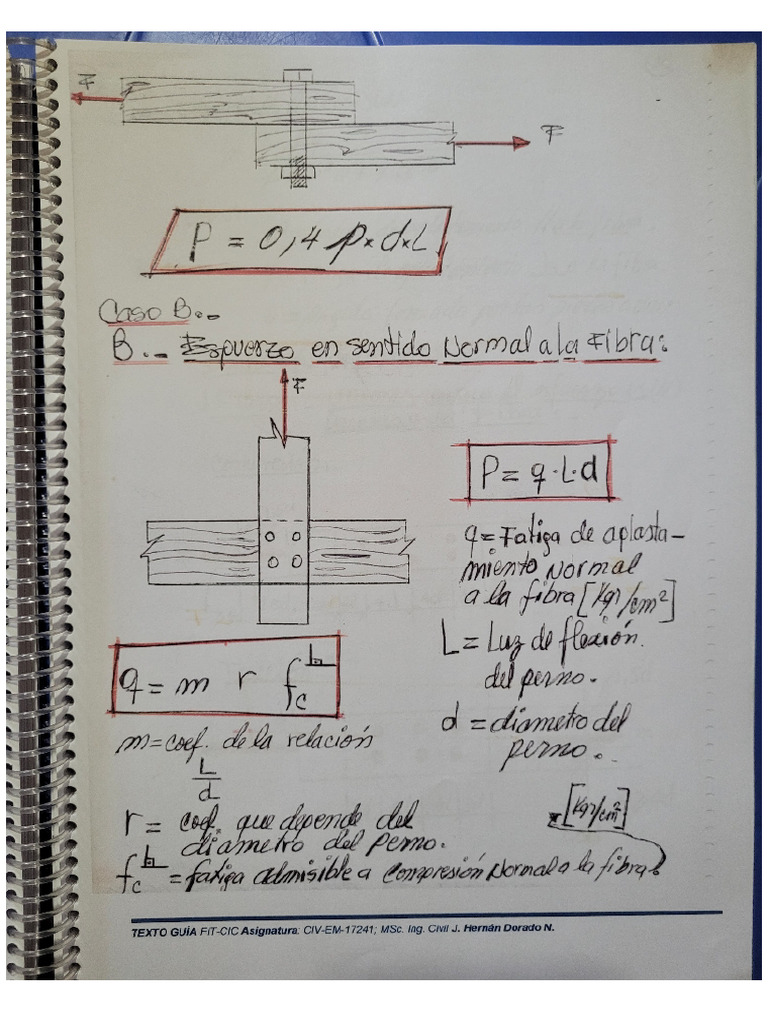 F
F
P = 0,4 p×d×L
Caso B.-
B.- Esfuerzo en sentido Normal a la Fibra:
F
P = q·L·d
q = Fatiga de aplasta-
miento Normal
a la fibra [Kgr/cm²]
L = Luz de flexión
del perno.
d = diametro del
perno.
q = m r fc⊥
m = coef. de la relación
L
d
r = coef. que depende del
diametro del perno.
[Kgr/cm²]
fc⊥ = fatiga admisible a compresión Normal a la fibra.
TEXTO GUÍA FIT-CIC Asignatura: CIV-EM-17241; MSc. Ing. Civil J. Hernán Dorado N.